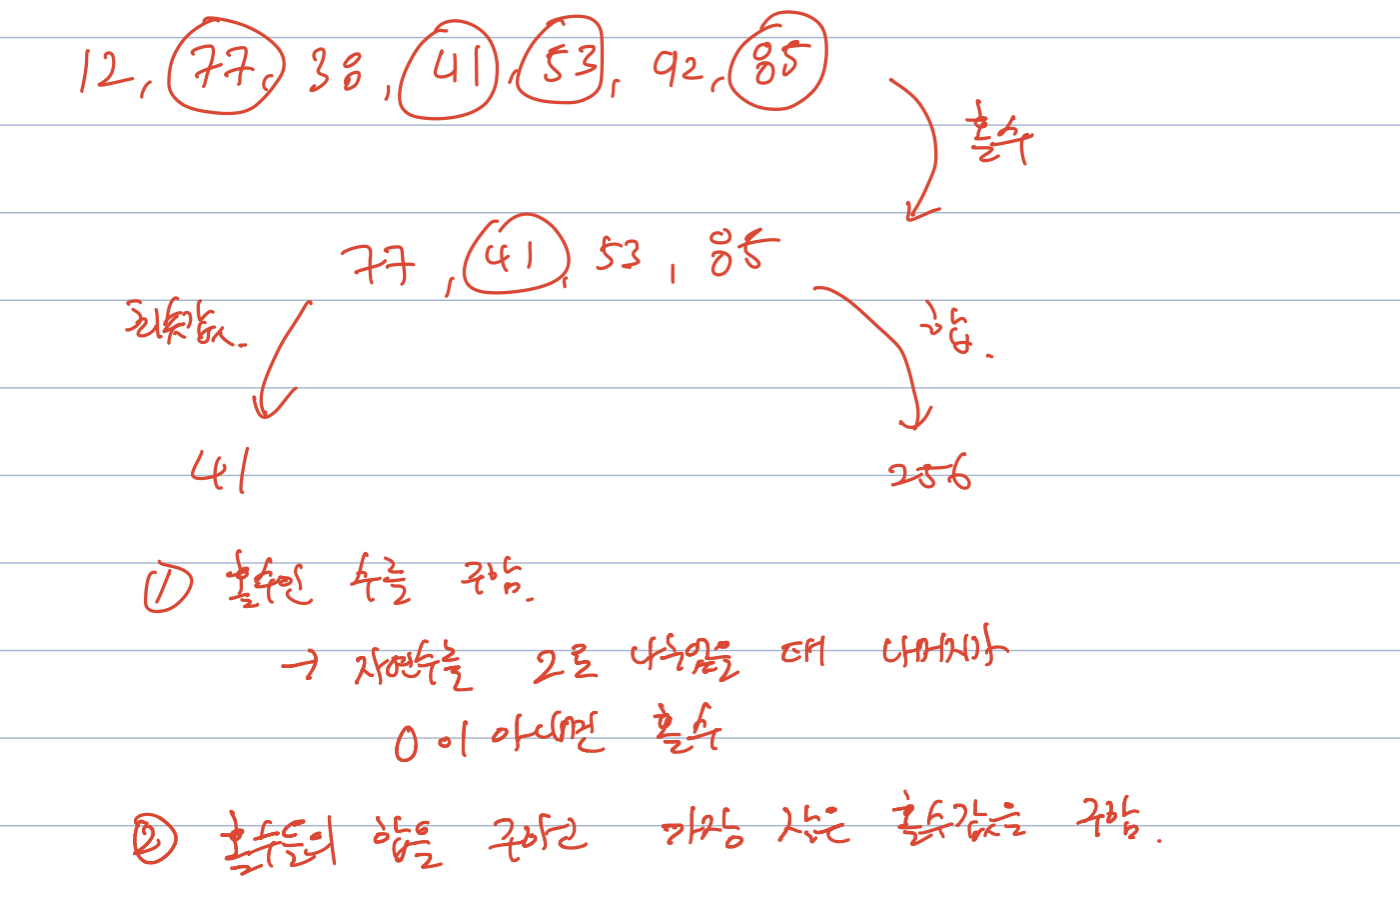 12, 77, 38, 41, 53, 92, 85
홀수
77, 41, 53, 85
최솟값.
합.
41
256
① 홀수인 수를 구함.
→ 자연수를 2로 나누었을 때 나머지가
0이 아니면 홀수
② 홀수들의 합을 구하고 가장 작은 홀수값을 구함.